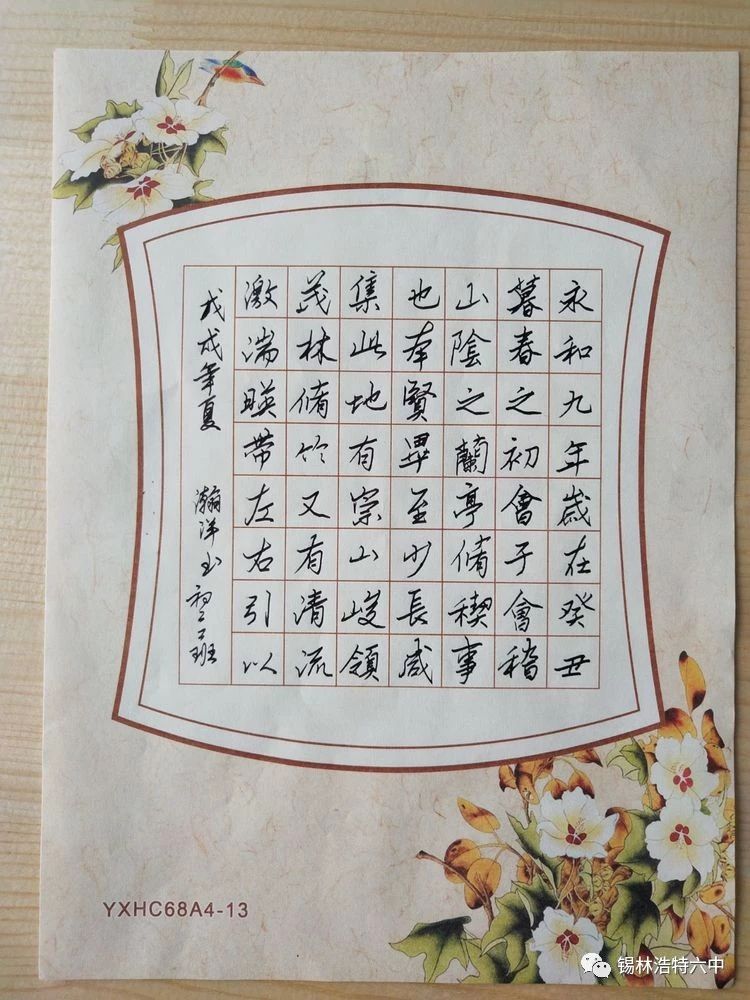 永和九年歲在癸丑
暮春之初會于會稽
山陰之蘭亭脩禊事
也羣賢畢至少長咸
集此地有崇山峻領
茂林脩竹又有清流
激湍暎帶左右引以
戊戌年夏 瀚洋书 班
YXHC68A4-13
锡林浩特六中